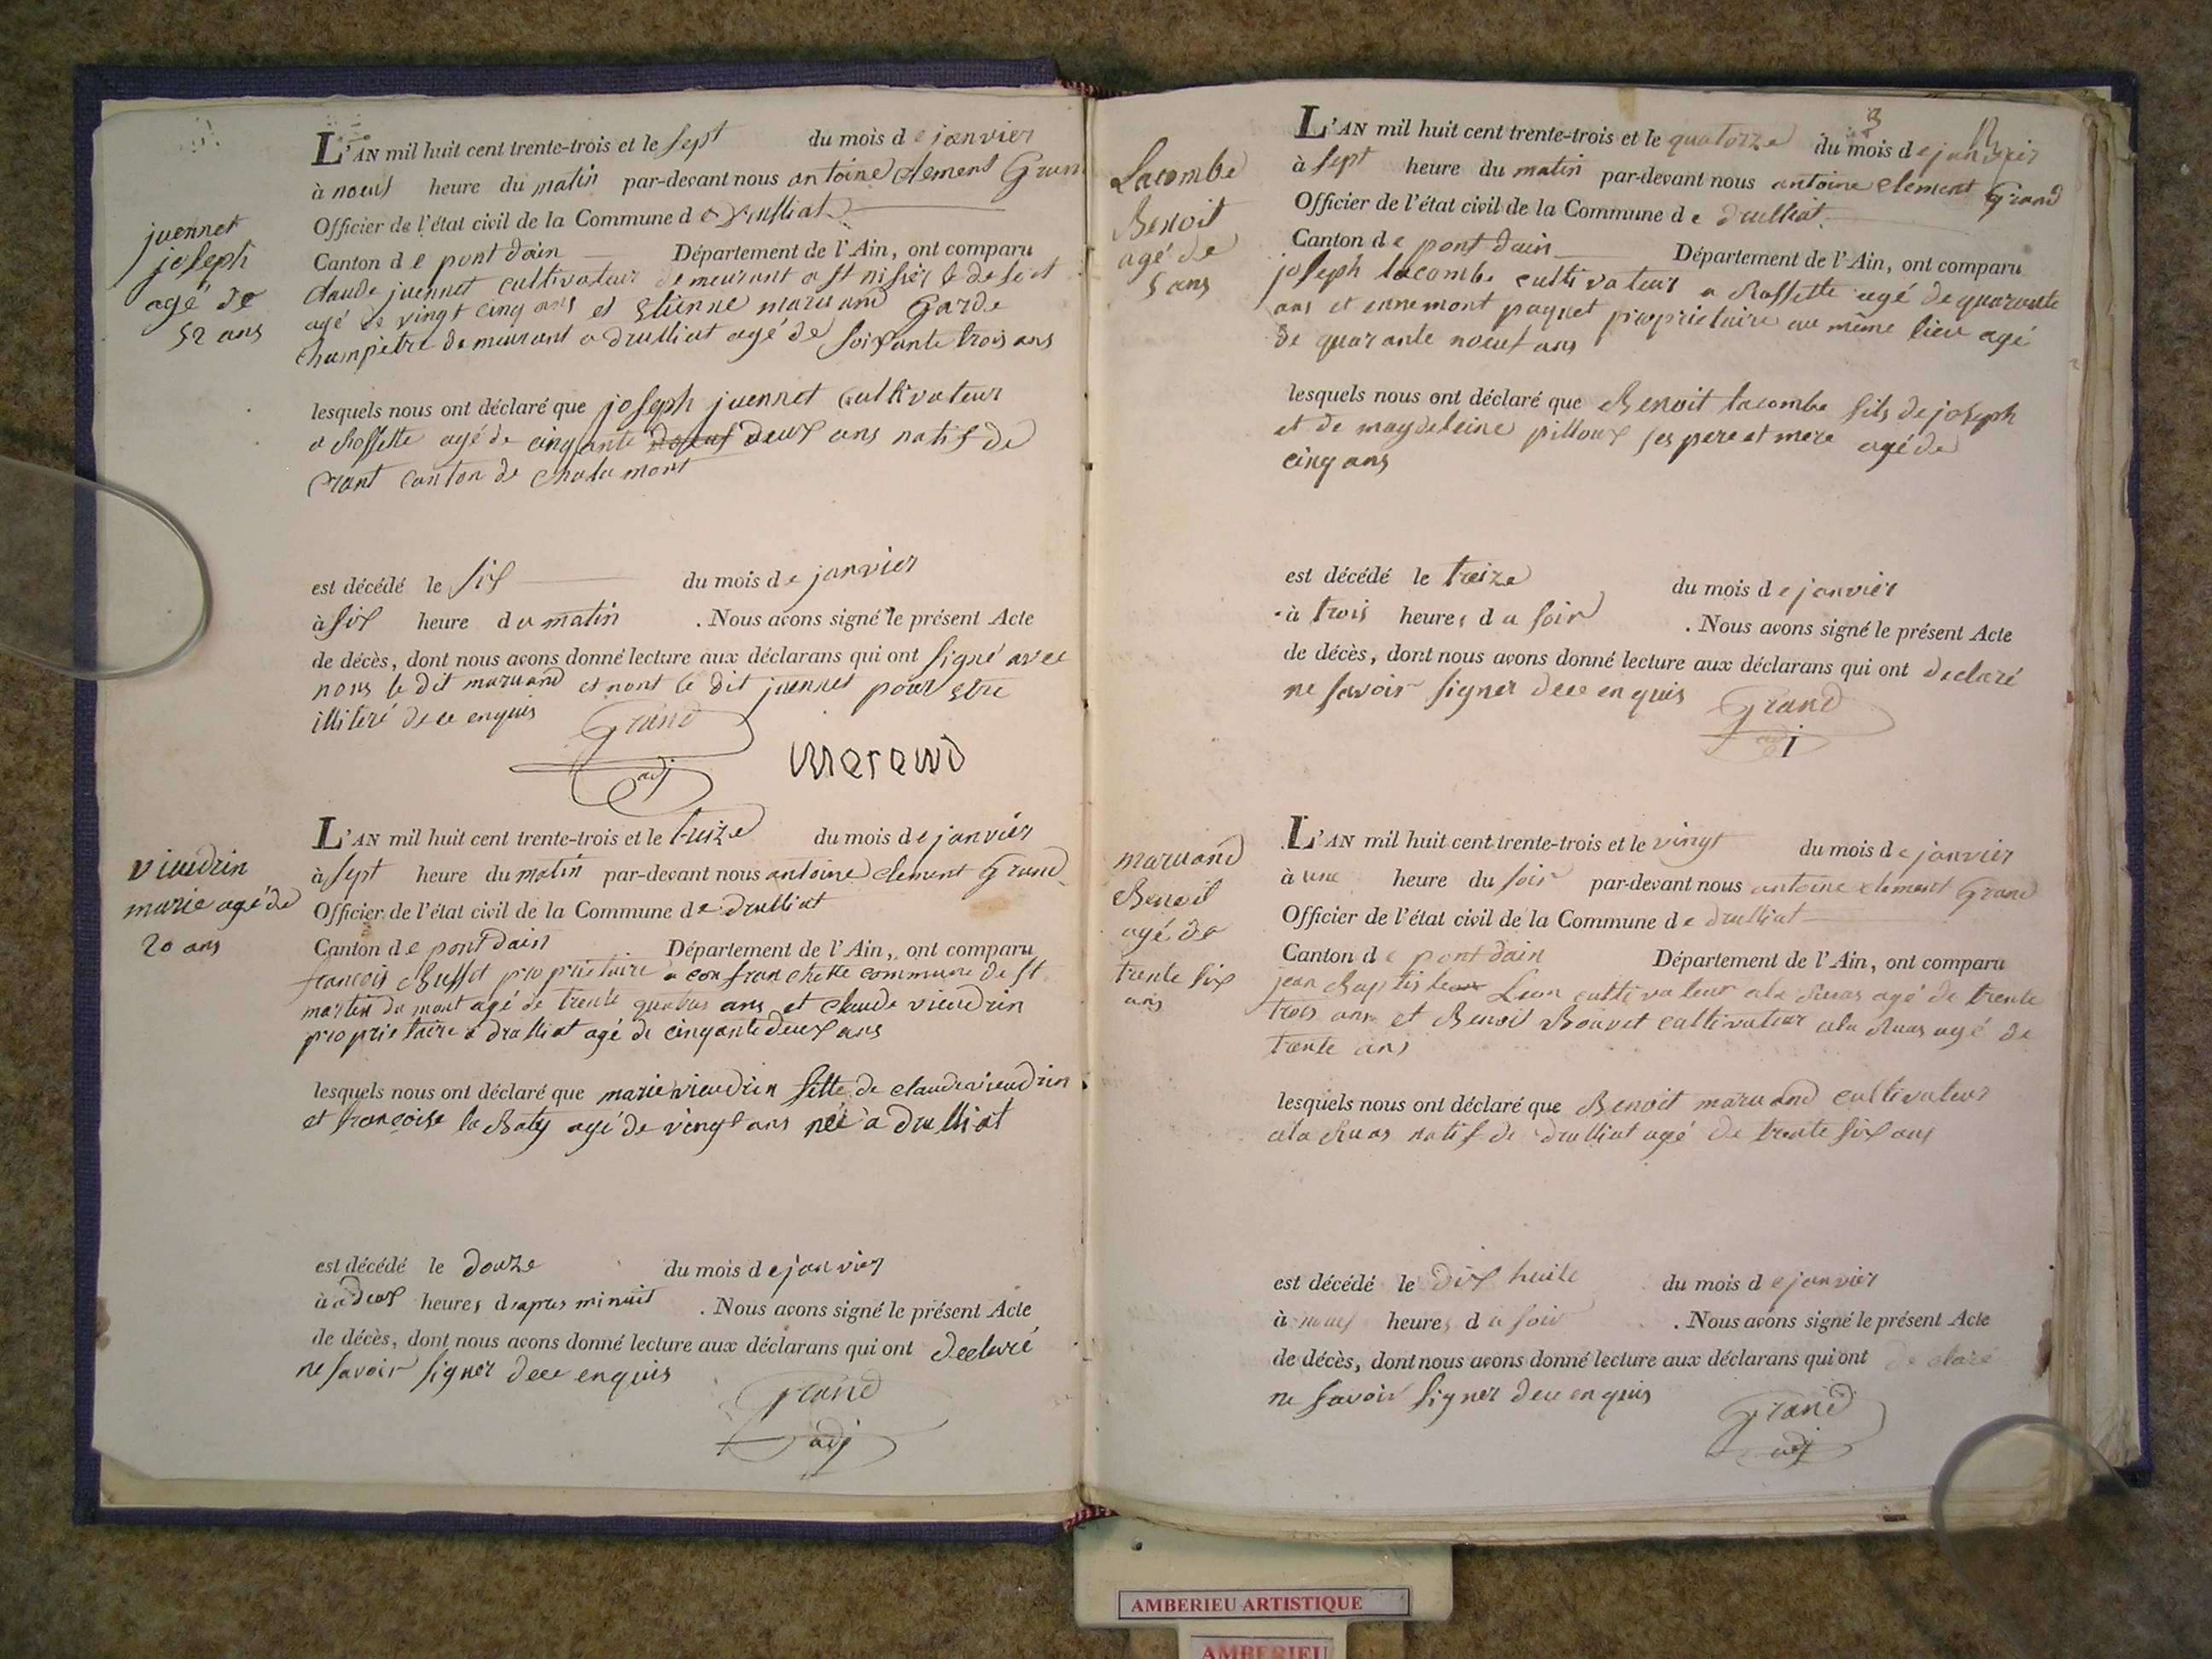 juennet
joseph
agé de
52 ans
L'AN mil huit cent trente-trois et le sept du mois de janvier
à noeuf heure du matin par-devant nous antoine clement Grand
Officier de l'état civil de la Commune de drulliat
Canton de pont dain Département de l'Ain, ont comparu
claude juennet cultivateur demeurant a st nisier le desert
agé de vingt cinq ans et Etienne maruand Garde
champetre demeurant a drulliat agé de soixante trois ans
lesquels nous ont déclaré que joseph juennet cultivateur
a Rossette agé de cinqante deux ans natif de
Crant canton de chalamont
est décédé le six du mois de janvier
à six heure du matin . Nous avons signé le présent Acte
de décès, dont nous avons donné lecture aux déclarans qui ont signé avec
nous le dit maruand et nont le dit juennet pour etre
illiteré de ce enquis Grand
adj maraud
viendrin
marie agé de
20 ans
L'AN mil huit cent trente-trois et le treize du mois de janvier
à sept heure du matin par-devant nous antoine clement Grand
Officier de l'état civil de la Commune de drulliat
Canton de pont dain Département de l'Ain, ont comparu
francois Buffet proprietaire a confranchette commune de st
martin du mont agé de trente quatre ans et claude viendrin
proprietaire a drulliat agé de cinqante deux ans
lesquels nous ont déclaré que marie viendrin fille de claude viendrin
et francoise la Baty agé de vingt ans née a drulliat
est décédé le douze du mois de janvier
à a deux heures d apres minuit . Nous avons signé le présent Acte
de décès, dont nous avons donné lecture aux déclarans qui ont declaré
ne savoir signer de ce enquis
Grand
adj
3
Lacombe
Benoit
agé de
5 ans
L'AN mil huit cent trente-trois et le quatorze du mois de janvier
à sept heure du matin par-devant nous antoine clement Grand
Officier de l'état civil de la Commune de drulliat
Canton de pont dain Département de l'Ain, ont comparu
joseph lacombe cultivateur a Rossette agé de quarante
ans et ennemont paquet proprietaire au même lieu agé
de quarante noeuf ans
lesquels nous ont déclaré que Benoit lacombe fils de joseph
et de magdeleine pilloux ses pere et mere agé de
cinq ans
est décédé le treize du mois de janvier
à trois heures du soir . Nous avons signé le présent Acte
de décès, dont nous avons donné lecture aux déclarans qui ont declaré
ne savoir signer de ce enquis Grand
adj
maruand
Benoit
agé de
trente six
ans
L'AN mil huit cent trente-trois et le vingt du mois de janvier
à une heure du soir par-devant nous antoine clement Grand
Officier de l'état civil de la Commune de drulliat
Canton de pont dain Département de l'Ain, ont comparu
jean Baptiste Leon cultivateur a la Ruas agé de trente
trois ans et Benoit Bouvet cultivateur a la Ruas agé de
trente ans
lesquels nous ont déclaré que Benoit maruand cultivateur
a la Ruas natif de drulliat agé de trente six ans
est décédé le dix huite du mois de janvier
à noeuf heures du soir . Nous avons signé le présent Acte
de décès, dont nous avons donné lecture aux déclarans qui ont declaré
ne savoir signer de ce enquis
Grand
adj
AMBERIEU ARTISTIQUE
AMBERIEU